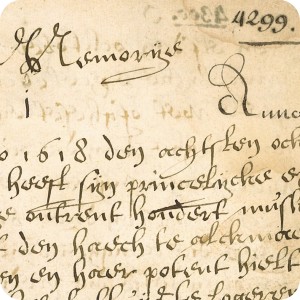 4299.
Memorye
1 Anno
o 1618 den achtsten oct
heeft sijn princelycke e
e ontrent hondert musk
t den haech te alckma
en en haer potent hielt